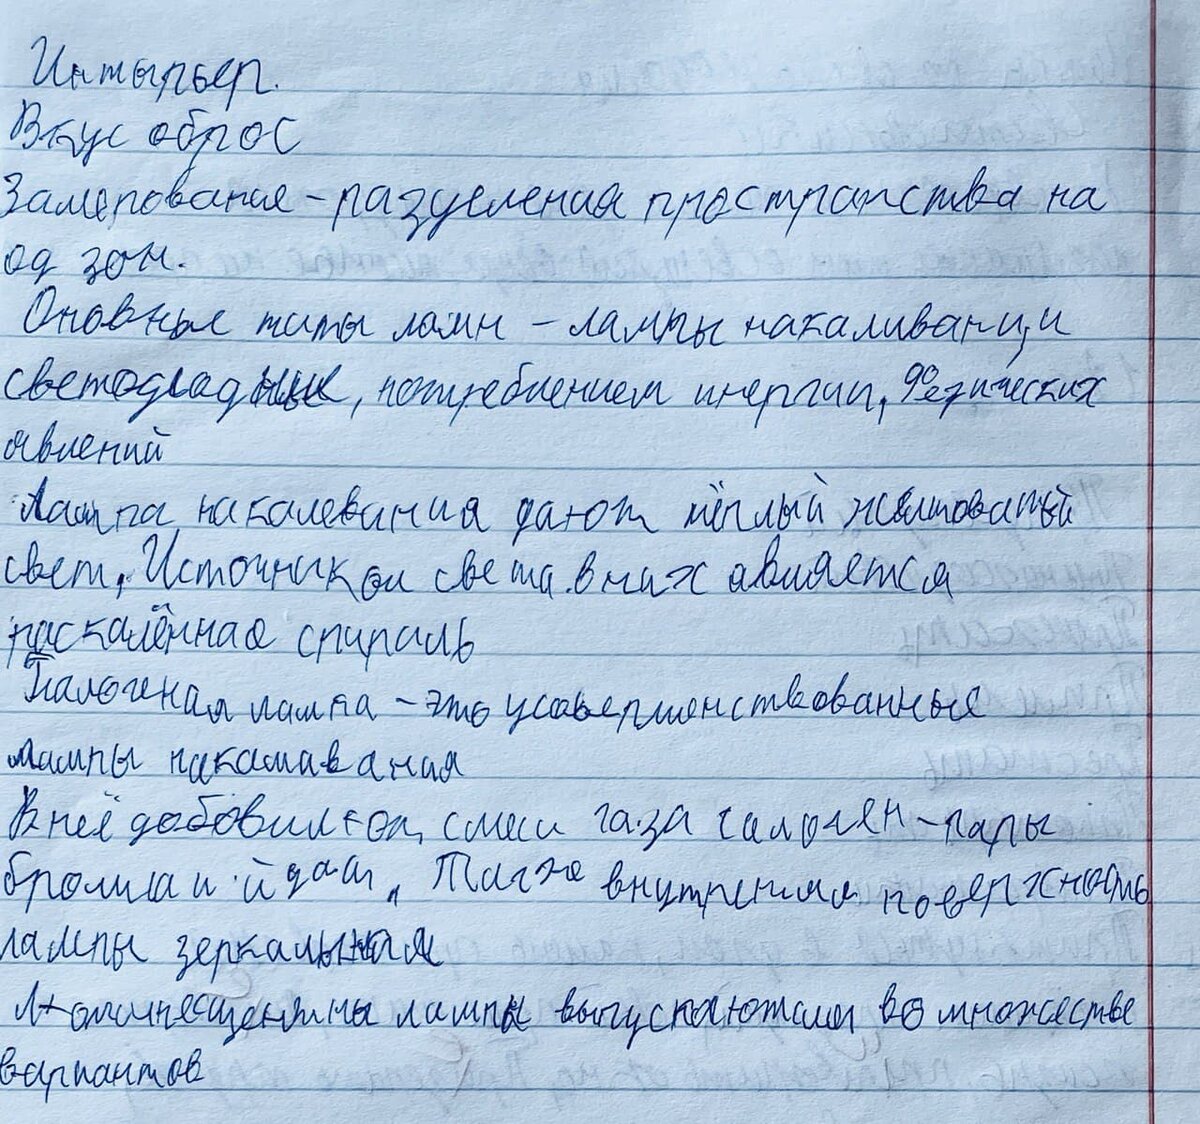 Интырьер.
Вкус оброс
разделения пространства на
од зон.
Оновные типы ламп – лампы накаливани, и
потребнением инергии, Фезических
явлений
Лампа накалевания дают тёплый желтоватый
свет, Источником света в них авляется
раскалённая спираль
Галогеная лампа – это усовершенствованные
лампы накамавания
В неё добовил смеси газа галоген – пары
брома и йдат, Также внутреняя поверхность
лампы зеркальная
лампы выпускаютмя во множестве
вариантов